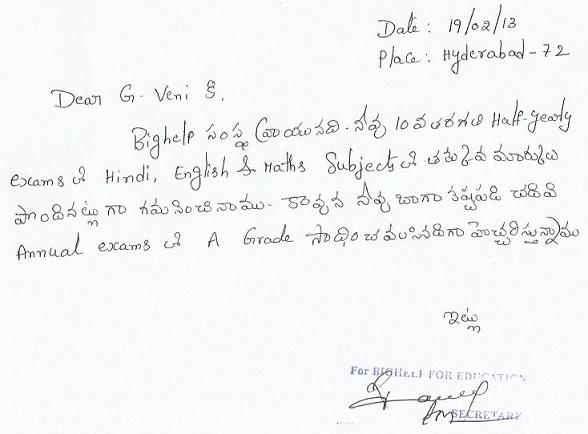 Date: 19/02/13
Place: Hyderabad-72
Dear G. Veni కి,
Bighelp సంస్థ వ్రాయునది. నీవు 10వ తరగతి Half-yearly
exams లో Hindi, English & Maths Subjects లో తక్కువ మార్కులు
పొందినట్లు గా గమనించినాము. కావున నీవు బాగా కష్టపడి చదివి
Annual exams లో A Grade సాధించవలసినదిగా హెచ్చరిస్తున్నాము
ఇట్లు
For BIGHELP FOR EDUCATION
SECRETARY